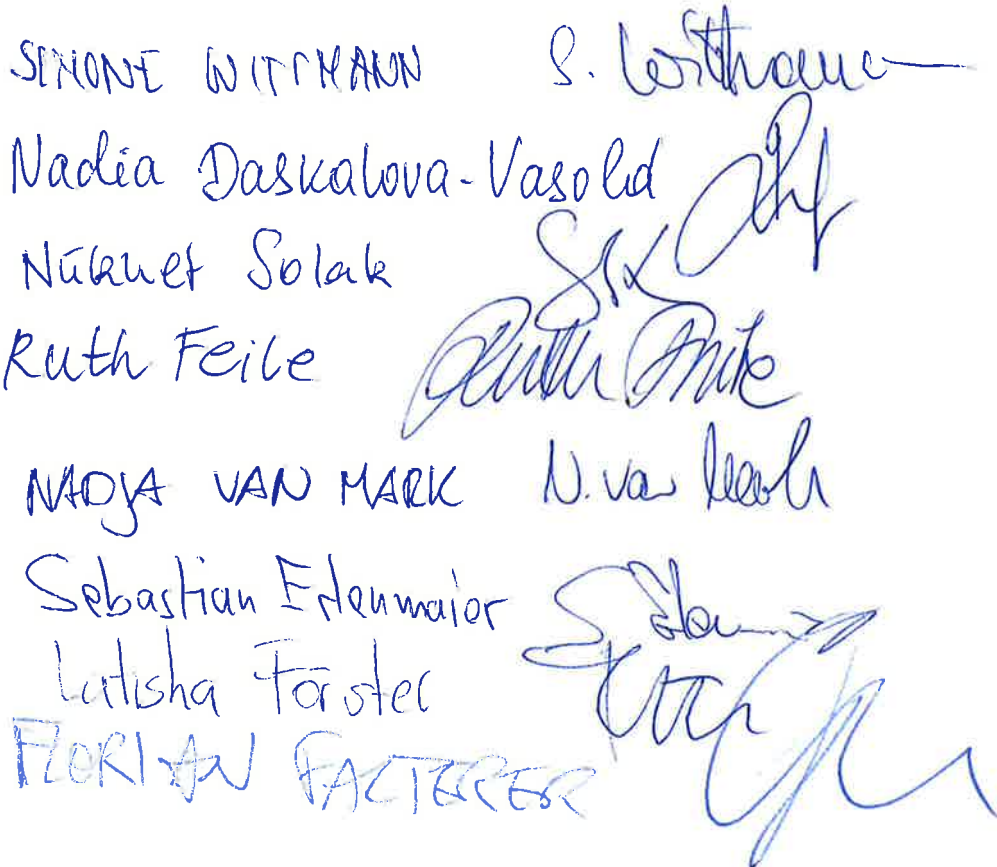 SIMONE WITTMANN S. Wittmann
Nadia Daskalova-Vasold
Nükhet Solak
Ruth Feile Ruth Feile
NADJA VAN MARK N. van Mark
Sebastian Erlenmaier
Latisha Forster
FLORIAN FALTERER